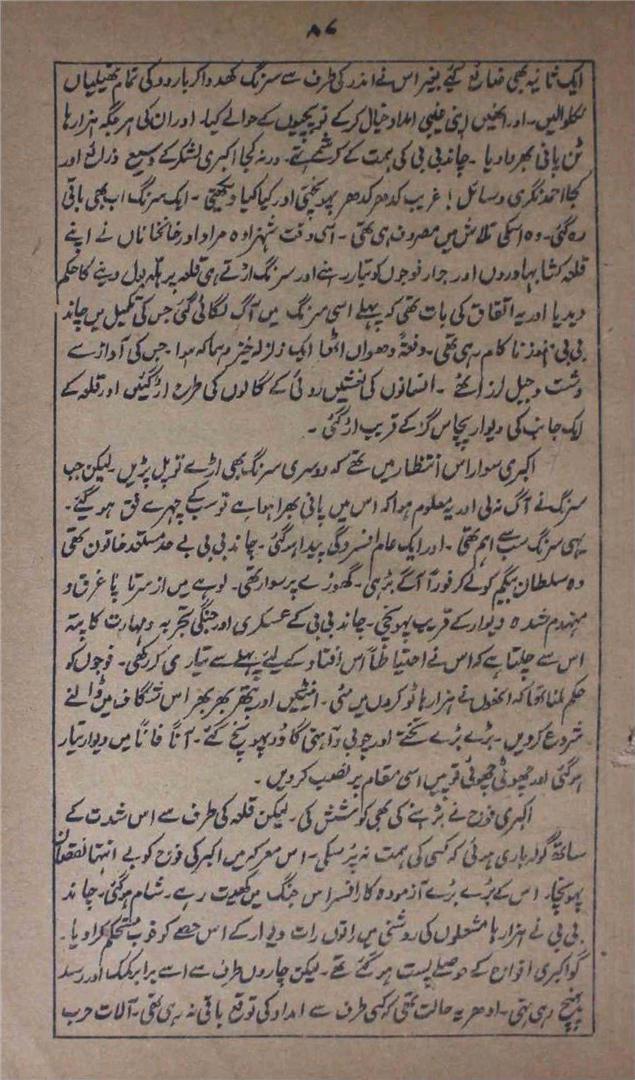 ۸۶
ایک ثانیہ بھی ضائع کیے بغیر اس نے اندر کی طرف سے سرنگ کھدوا کر بارود کی تمام تھیلیاں
نکلوالیں۔ اور انھیں اپنی غیبی امداد خیال کرکے توپچیوں کے حوالے کیا۔ اور ان کی ہر جگہ ہزارہا
ٹن پانی بھروادیا۔ چاند بی بی کی ہمت کے کرشمے تھے۔ ورنہ کجا اکبری لشکر کے وسیع ذرائع اور
کجا احمد نگری وسائل! غریب کدھر کدھر پہونچتی اور کیا کیا دیکھتی۔ ایک سرنگ اب بھی باقی
رہ گئی۔ وہ اسکی تلاش میں مصروف ہی تھی۔ اسی وقت شہزادہ مراد اور خانخاناں نے اپنے
قلعہ کشا بہادروں اور جرار فوجوں کو تیار رہنے اور سرنگ اڑتے ہی قلعہ پر ہلہ بول دینے کا حکم
دیدیا اور یہ اتفاق کی بات تھی کہ پہلے اسی سرنگ میں آگ لگائی گئی جس کی تکمیل میں چاند
بی بی ہنوز ناکام رہی تھی۔ دفعۃً دھواں اٹھا ایک زلزلہ خیز دہماکہ ہوا۔ جس کی آواز سے
دشت و جبل لرز اٹھے۔ انسانوں کی نعشیں روئی کے گالوں کی طرح اڑ گئیں اور قلعہ کے
ایک جانب کی دیوار پچاس گز کے قریب اڑ گئی۔
اکبری سوار اس انتظار میں تھے کہ دوسری سرنگ بھی اڑے تو پل پڑیں۔ لیکن جب
سرنگ نے آگ نہ لی اور یہ معلوم ہوا کہ اس میں پانی بھرا ہوا ہے تو سب کے چہرے فق ہو گیے۔
یہی سرنگ سب سے اہم تھی۔ اور ایک عام افسردگی پیدا ہو گئی۔ چاند بی بی بے حد مستعد خاتون تھی
وہ سلطان بیگم کو لے کر فوراً آگے بڑہی۔ گھوڑے پر سوار تھی۔ لوہے میں از سر تا پا غرق و
منہدم شدہ دیوار کے قریب پہونچی۔ چاند بی بی کے عسکری اور جنگی تجربہ و مہارت کا پتہ
اس سے چلتا ہے کہ اس نے احتیاطاً اس افتاد کے لیئے پہلے سے تیاری کر رکھی تھی۔ فوجوں کو
حکم ملنا تھا کہ انھوں نے ہزارہا ٹوکروں میں مٹی۔ اینٹیں اور پتھر بھر بھر اس شگاف میں ڈالنے
شروع کردیں۔ بڑے بڑے تختے اور چوبی و آہنی گاوڈر پہونچ گئے۔ آناً فاناً میں دیوار تیار
ہو گئی اور چھوٹی چھوٹی توپیں اسی مقام پر نصب کردیں۔
اکبری فوج نے بڑہنے کی بھی کوشش کی۔ لیکن قلعہ کی طرف سے اس شدت کے
ساتھ گولہ باری ہوئی کہ کسی کی ہمت نہ پڑ سکی۔ اس معرکہ میں اکبر کی فوج کو بے انتہا نقصان
پہونچا۔ اس کے بڑے بڑے آزمودہ کار افسر اس جنگ میں کھیت رہے۔ شام ہو گئی۔ چاند
بی بی نے ہزارہا مشعلوں کی روشنی میں راتوں رات دیوار کے اس حصے کو خوب مستحکم کرادیا۔
گو اکبری افواج کے حوصلے پست ہو گئے تھے۔ لیکن چاروں طرف سے اسے برابر کمک اور رسد
پہنچ رہی تھی۔ ادھر یہ حالت تھی کہ کسی طرف سے امداد کی توقع باقی نہ رہی تھی۔ آلات حرب